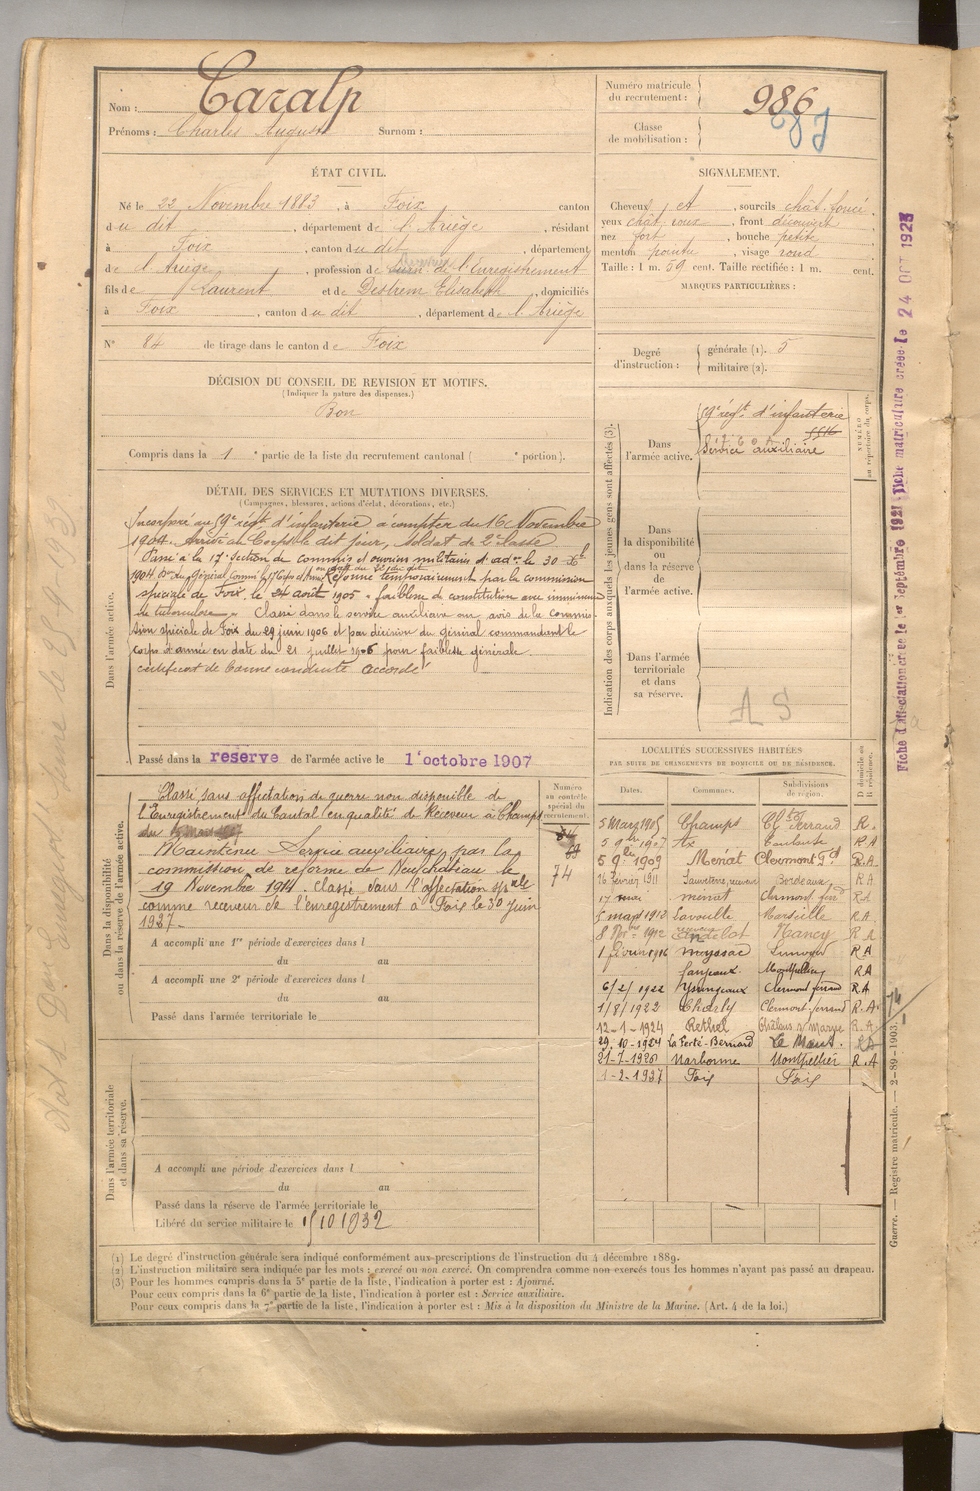 Nom : Caralp
Prénoms : Charles Auguste Surnom :
Numéro matricule du recrutement : 986
Classe de mobilisation :
ÉTAT CIVIL.
Né le 22 Novembre 1883, à Foix canton
du dit, département de l'Ariège, résidant
à Foix, canton du dit, département
de l'Ariège, profession de de l'Enregistrement
fils de Laurent et de Destrem Elisabeth, domiciliés
à Foix, canton du dit, département de l'Ariège
N° 84 de tirage dans le canton de Foix
SIGNALEMENT.
Cheveux et, sourcils chât. foncé,
yeux chât. roux, front découvert,
nez fort, bouche petite,
menton pointu, visage rond
Taille : 1 m. 59 cent. Taille rectifiée : 1 m. cent.
MARQUES PARTICULIÈRES :
Degré d'instruction : générale (1). 5
militaire (2).
DÉCISION DU CONSEIL DE REVISION ET MOTIFS.
(Indiquer la nature des dispenses.)
Bon
Compris dans la 1e partie de la liste du recrutement cantonal ( e portion).
DÉTAIL DES SERVICES ET MUTATIONS DIVERSES.
(Campagnes, blessures, actions d'éclat, décorations, etc.)
Dans l'armée active.
Incorporé au 59e régt d'infanterie à compter du 16 Novembre
1904. Arrivé au Corps le dit jour, Soldat de 2e classe
Passé à la 17e Section de commis et ouvriers militaires d'adon le 30 Xbre
1904 Réformé temporairement par la commission
spéciale de Foix le 24 août 1905 - faiblesse de constitution avec imminence
de tuberculose. Classé dans le service auxiliaire sur avis de la commis-
sion spéciale de Foix du 29 juin 1906 et par décision du général commandant le
corps d'armée en date du 21 juillet 1906 pour faiblesse générale.
certificat de bonne conduite accordé
Passé dans la réserve de l'armée active le 1er octobre 1907
Indication des corps auxquels les jeunes gens sont affectés (3).
NUMÉRO au répertoire du corps.
Dans l'armée active.
59e régt d'infanterie
Service auxiliaire
Dans la disponibilité ou dans la réserve de l'armée active.
Dans l'armée territoriale et dans sa réserve.
A S
Dans la disponibilité ou dans la réserve de l'armée active.
Numéro au contrôle spécial du recrutement.
74
Classé sans affectation de guerre non disponible de
l'Enregistrement du Cantal en qualité de Receveur à Champs
Maintenu Service auxiliaire par la
commission de réforme de Neufchâteau le
19 Novembre 1914. Classé dans l'affectation spale
comme receveur de l'enregistrement à Foix le 30 juin
1927.
A accompli une 1re période d'exercices dans l
du au
A accompli une 2e période d'exercices dans l
du au
Passé dans l'armée territoriale le
LOCALITÉS SUCCESSIVES HABITÉES
PAR SUITE DE CHANGEMENTS DE DOMICILE OU DE RÉSIDENCE.
Dates. Communes. Subdivisions de région. D domicile ou R résidence.
5 Mars 1905 Champs Clt Ferrand R.
5 9bre 1907 Ax Toulouse R A
5 9bre 1909 Menat Clermont Fd R.A
16 février 1911 Sauveterre, receveur Bordeaux R A
17 mai menat Clermont ferd R.A
5 mars 1912 Lavoulte Marseille R A
8 9bre 1912 Andelot Nancy R A
1 février 1916 meyssac Limoges R A
fanjeaux Montpellier R A
6/2/1922 Yssingeaux Clermont ferrand R.A
1/8/1922 Charly Clermont-ferrand R.A.
12-1-1924 Rethel Châlons s/Marne R.A
29-10-1924 La Ferté-Bernard Le Mans. R A
31-7-1926 Narbonne Montpellier R.A
1-2-1937 Foix Foix
Dans l'armée territoriale et dans sa réserve.
A accompli une période d'exercices dans l
du au
Passé dans la réserve de l'armée territoriale le
Libéré du service militaire le 15/10/1932
(1) Le degré d'instruction générale sera indiqué conformément aux prescriptions de l'instruction du 4 décembre 1889.
(2) L'instruction militaire sera indiquée par les mots : exercé ou non exercé. On comprendra comme non exercés tous les hommes n'ayant pas passé au drapeau.
(3) Pour les hommes compris dans la 5e partie de la liste, l'indication à porter est : Ajourné.
Pour ceux compris dans la 6e partie de la liste, l'indication à porter est : Service auxiliaire.
Pour ceux compris dans la 7e partie de la liste, l'indication à porter est : Mis à la disposition du Ministre de la Marine. (Art. 4 de la loi.)
Fiche d'affectation créée le 1er Septembre 1921 Fiche matriculaire créée le 24 OCT 1925
Guerre. — Registre matricule. — 2-89-1903.